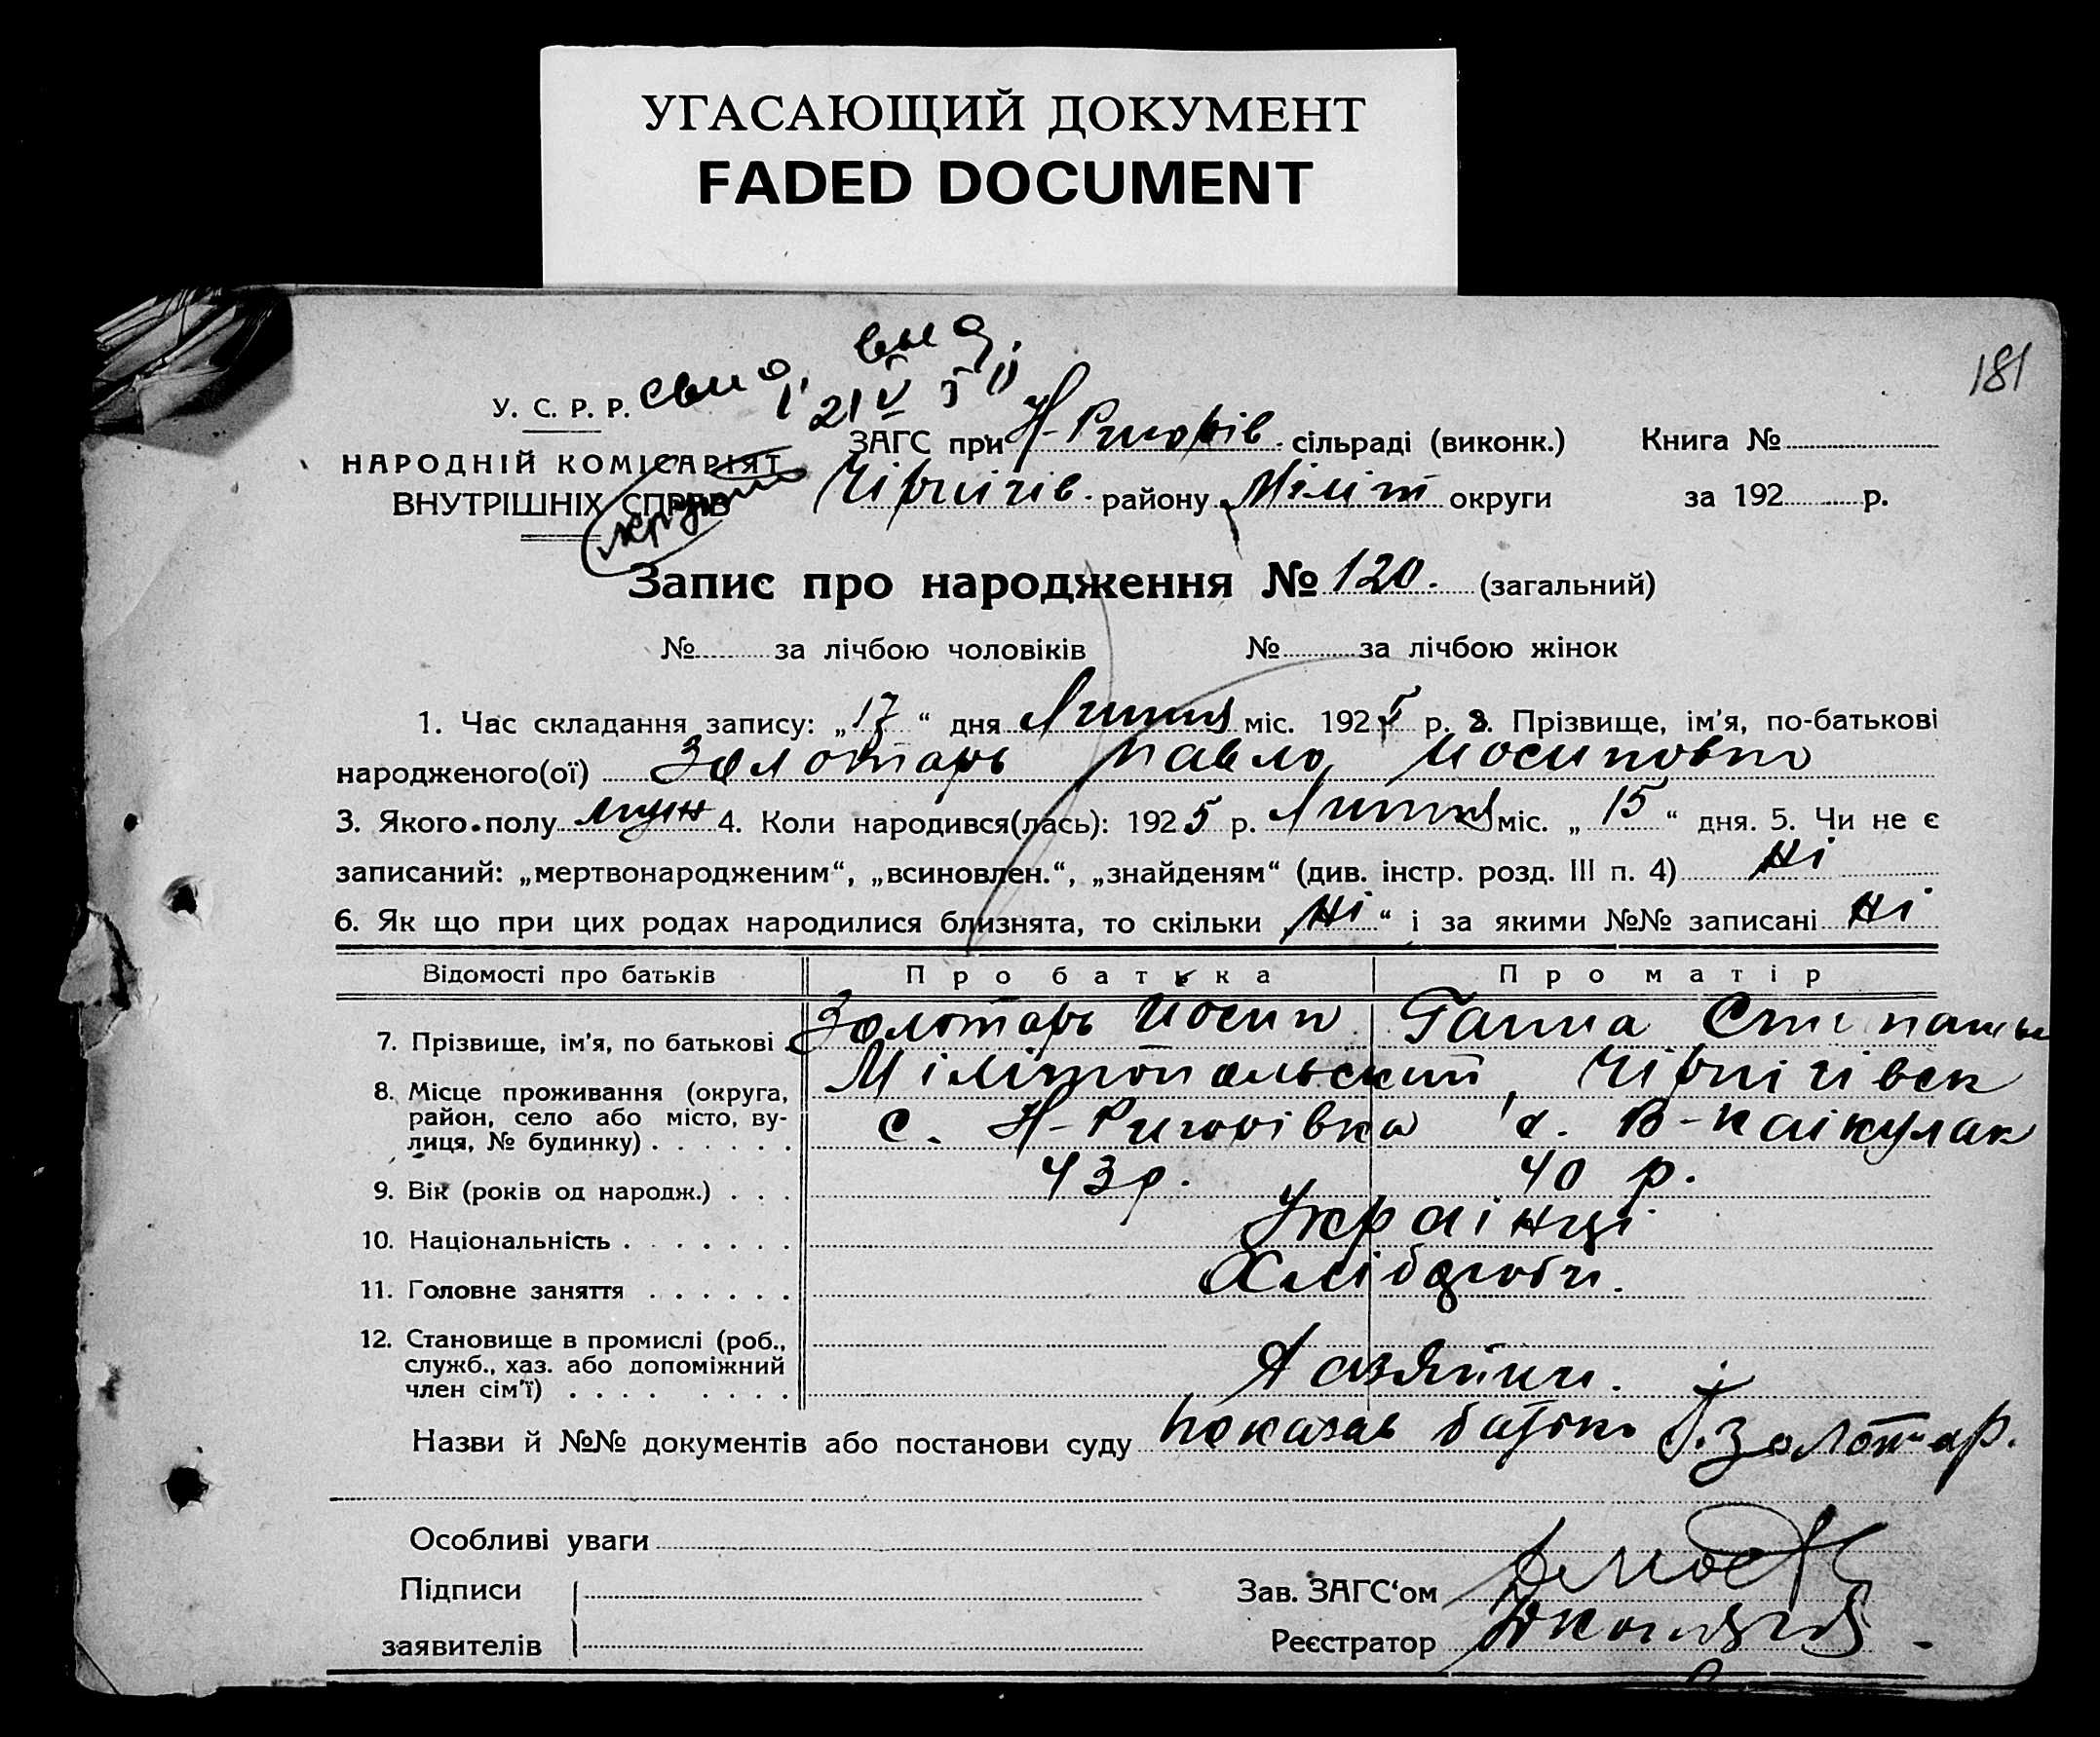 УГАСАЮЩИЙ ДОКУМЕНТ
FADED DOCUMENT
181
У. С. Р. Р.
НАРОДНІЙ КОМІСАРІЯТ
ВНУТРІШНІХ СПРАВ
21 V 50
ЗАГС при Н-Григорів. сільраді (виконк.) Книга №
Чірнігів. району Міліт округи за 192 р.
Запис про народження № 120. (загальний)
№ за лічбою чоловіків № за лічбою жінок
1. Час складання запису: „17“ дня Липня міс. 1925 р. 2. Прізвище, ім’я, по-батькові
народженого(ої) Золотарь Павло Йосипович
3. Якого полу муж 4. Коли народився(лась): 1925 р. Липня міс. „15“ дня. 5. Чи не є
записаний: „мертвонародженим“, „всиновлен.“, „знайденям“ (див. інстр. розд. III п. 4) Ні
6. Як що при цих родах народилися близнята, то скільки „Ні“ і за якими №№ записані Ні
Відомості про батьків Про батька Про матір
7. Прізвище, ім’я, по батькові Золотарь Йосип Ганна Степаны
8. Місце проживання (округа, Мілітопольский, Чірнігівск
район, село або місто, ву- с. Н-Григорівка с. В-Каікулак
лиця, № будинку)
9. Вік (років од народж.) 43 р. 40 р.
10. Національність Українці
11. Головне заняття Хлібороби.
12. Становище в промислі (роб.,
служб., хаз. або допоміжний Хазяйни.
член сім’ї)
Назви й №№ документів або постанови суду Показав батько Й. Золотар.
Особливі уваги
Підписи Зав. ЗАГС‘ом
заявителів Реєстратор